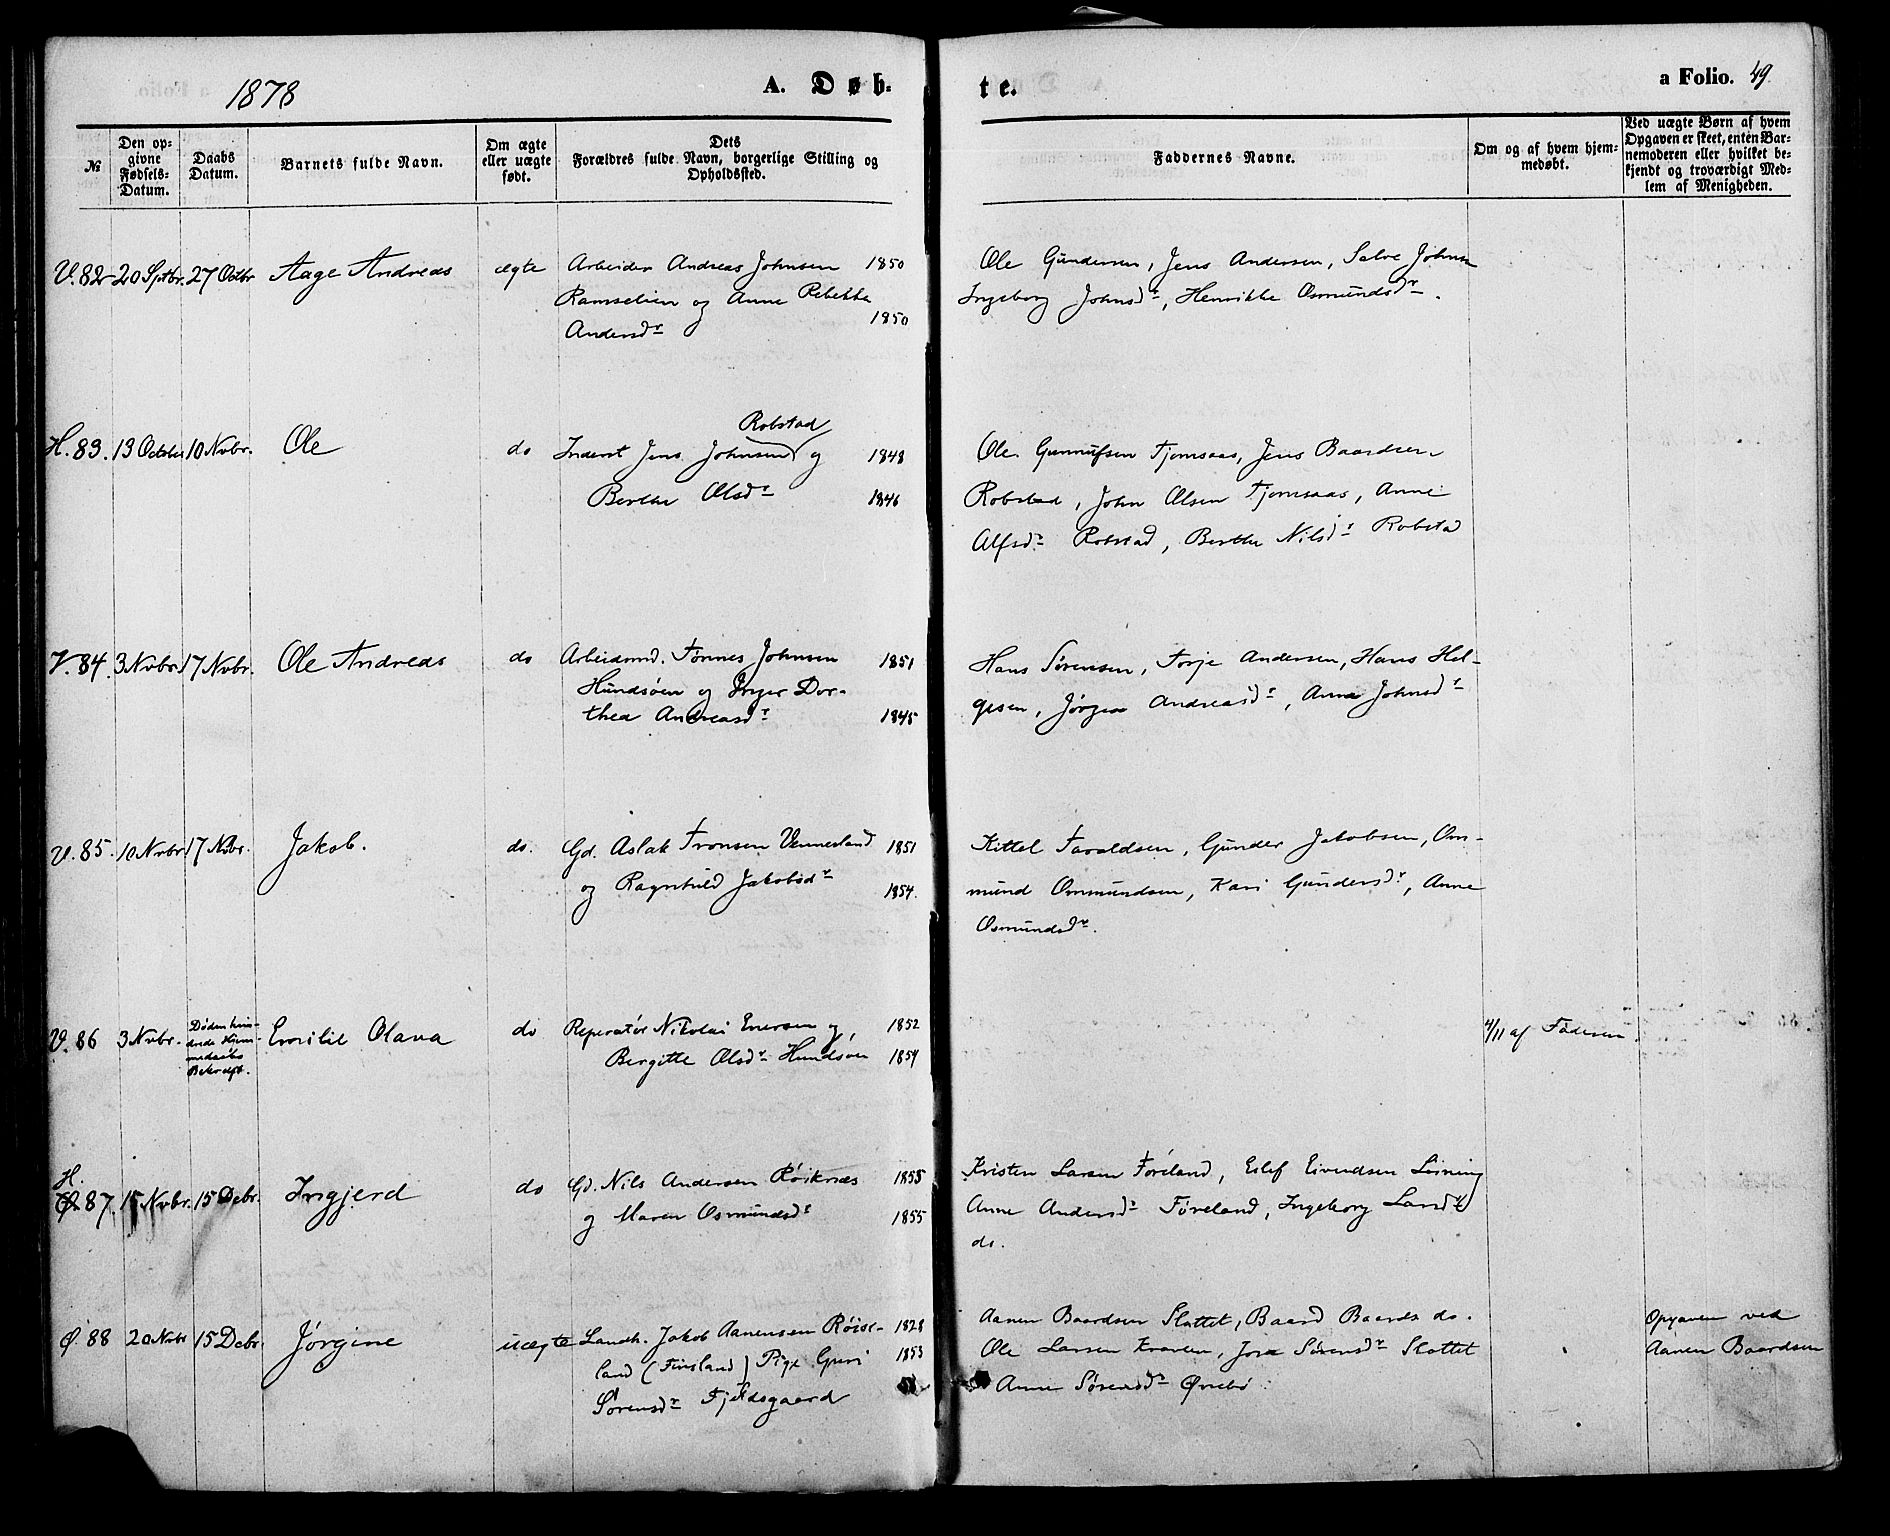 1878
A. Døb-
te.
a Folio. 49.
№
Den op-
givne
Fødsels-
Datum.
Daabs
Datum.
Barnets fulde Navn.
Om ægte
eller uægte
født.
Dets
Forældres fulde Navn, borgerlige Stilling og
Opholdssted.
Faddernes Navne.
Om og af hvem hjem-
medøbt.
Ved uægte Børn af hvem
Opgaven er skeet, enten Bar-
nemoderen eller hvilket be-
kjendt og troværdigt Med-
lem af Menigheden.
V. 82 20 Sptbr. 27 Octbr Aage Andreas ægte Arbeider Andreas Johnsen 1850
Ramselien og Anne Rebekka
1850
Andersdr
Ole Gundersen, Jens Andersen, Salve Johnsen
Ingeborg Johnsdr, Henrikke Osmundsdr.
H. 83. 13 October 10 Nvbr. Ole do Inderst Jens Johnsen Robstad og 1848
Berthe Olsdr 1846
Ole Gunnufsen Fjomsaas, Jens Baardsen
Robstad, John Olsen Fjomsaas, Anne
Alfsdr Robstad, Berthe Nilsdr Robstad
V. 84. 3 Nvbr. 17 Nvbr. Ole Andreas do Arbeidsmd. Tønnes Johnsen 1851
Hundsøen og Inger Dor-
thea Andreasdr 1845
Hans Sørensen, Torje Andersen, Hans Hel-
gesen, Jørgine Andreasdr, Anne Johnsdr
V. 85. 10 Nvbr 17 Nvbr. Jakob. do. Gd. Aslak Tronsen Vennesland 1851
og Ragnhild Jakobsdr 1854.
Kittel Taraldsen, Gunder Jakobsen, Om-
mund Ommundsen, Kari Gundersdr, Anne
Osmundsdr.
V. 86 3 Nvbr. Døden hin-
drede Hjem-
medaabs
Bekræft. Emilie Olava do Reperatør Nikolai Enersen og 1852
Bergitte Olsdr Hundsøen 1859
4/11 af Faderen.
H.
Ø. 87. 15 Nvbr. 15 Debr. Ingjerd do Gd. Nils Andersen Røiknæs 1855
og Maren Osmundsdr 1855
Kristen Larsen Føreland, Eilef Eivindsen Løining
Anne Andersdr Føreland, Ingeborg Larsdr
do.
Ø. 88 20 Nvbr 15 Debr. Jørgine uægte Landh. Jakob Aanensen Røise- 1828
land (Finsland) Pige Guri 1853
Sørensdr Fjeldsgaard
Aanen Baardsen Slottet, Baard Baards do.
Ole Larsen Kraagen, Jora Sørensdr Slottet
Anne Sørensdr Øvrebø
Opgaven ved
Aanen Baardsen